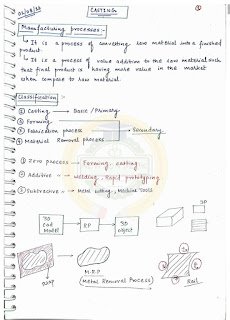 CASTING
Manufacturing processes:-
↳ It is a process of converting raw material into a finished
product.
↳ It is a process of value addition to the raw material such
that final product is having more value in the market
when compare to raw material.
Classification:-
① Casting → Basic / Primary
② Forming
③ Fabrication process → Secondary
④ Material Removal process
① Zero process → Forming, casting
② Additive → Welding, Rapid prototyping
③ Subtractive → Metal cutting, Machine Tools
3D
Cad
Model
RP
3D
object
3D
M.R.P
(Metal Removal Process)
Real